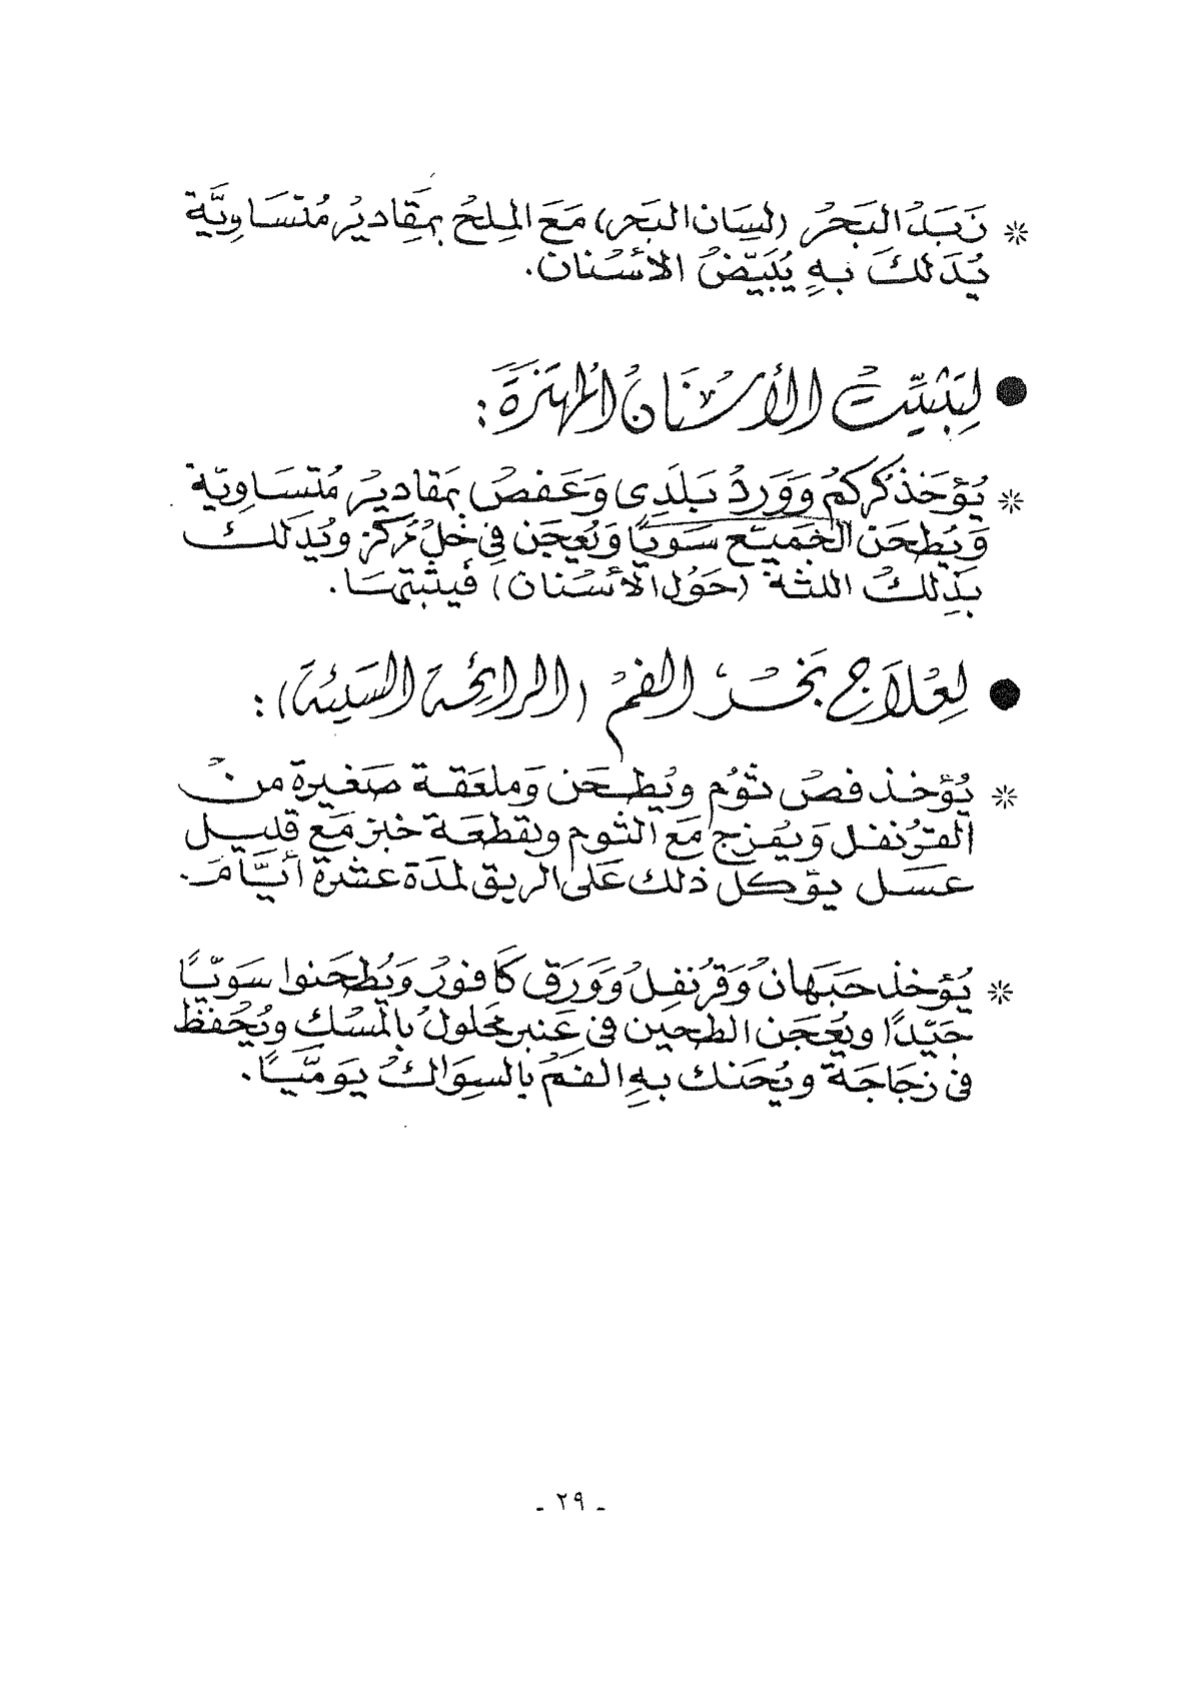 * زَبَدُ البَحرُ (لِسَان البَحر) مَعَ المِلحُ بمَقَادِيرُ مُتسَاوِيَّة
يُدَلكَ بهِ يُبَيّضُ الأسْنان.
● لِتَثبيّتْ الأسْنَانُ المُهتزَةَ :
* يُؤخَذ كركمُ وَوَردُ بَلَدِى وَعَفصُ بمَقادِيرُ مُتسَاوِيّة
وَيُطحَن الجَميَع سَويًا وَيُعجَن فِي خلْ مُركز ويُدَلكُ
بذِلكُ اللثة (حَوُل الأسْنان) فَيثبتهَا.
● لِعْلاَجِ بَخرُ الفمْ (الرائِحَة السَيئَة) :
* يُؤخذ فصُ ثوُم ويُطحَن وَملعَقة صَغيرة منْ
القرُنفل وَيمُزج مَع الثوم وبقطعَة خبز مَع قليل
عسَل يؤكل ذلك عَلى الريق لمدَة عشرة أيَّام.
* يُؤخذ حَبَهانُ وَقرُنفِلُ وَوَرَق كَافورُ وَيُطحَنوا سَويّاً
جَيّدًا ويُعجَن الطحين فى عَنبر محَلولُ بالمسْكِ ويُحُفظ
فى زجَاجَة ويُحَنك بهِ الفمُ بالسِوَاكُ يَومَّيًا.
- ٢٩ -